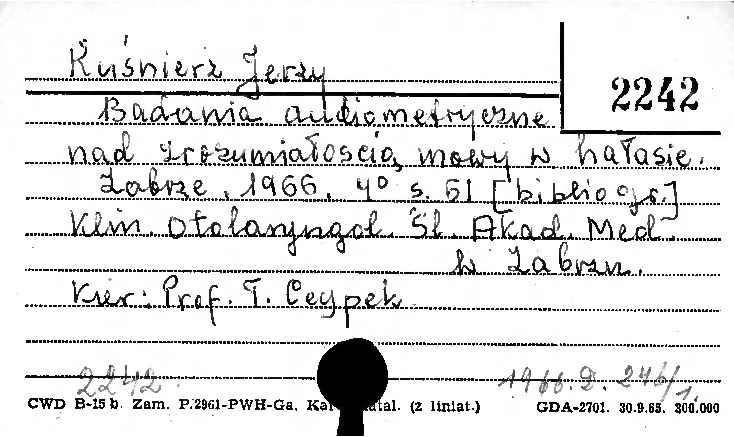 Kuśnierz Jerzy
2242
Badania audiometryczne
nad zrozumiałością mowy w hałasie.
Zabrze, 1966, 4° s. 51 [bibliogr.]
Klin. Otolaryngol. Śl. Akad. Med.
w Zabrzu.
Kier: Prof. T. Ceypek
2242
1966 D. 246/1.
CWD B-15 b. Zam. P.2961-PWH-Ga. Kar atal. (z liniat.) GDA-2701. 30.9.65. 300.000